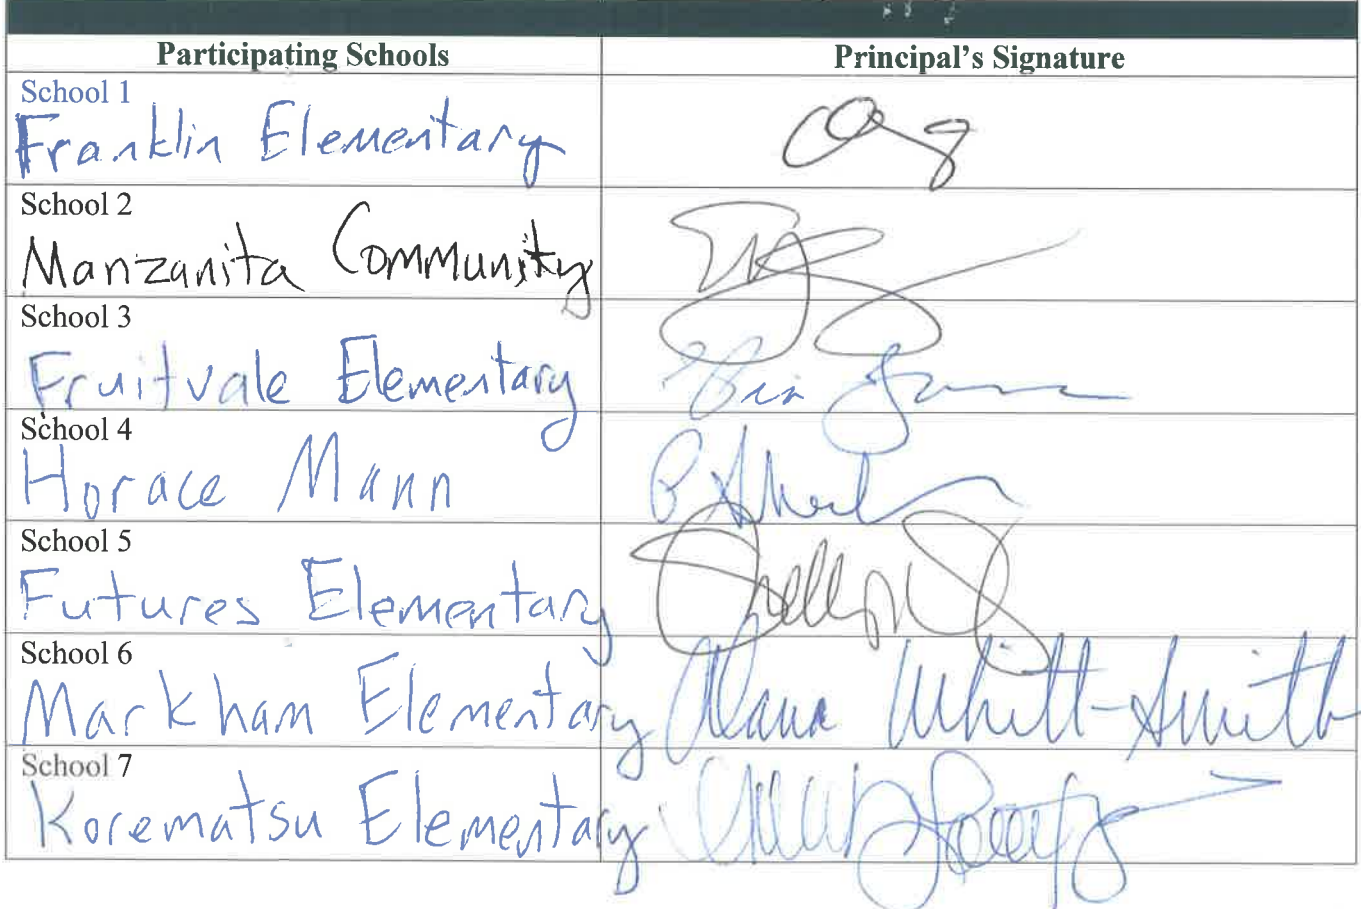 Participating Schools Principal's Signature
School 1
Franklin Elementary
School 2
Manzanita Community
School 3
Fruitvale Elementary
School 4
Horace Mann
School 5
Futures Elementary
School 6
Markham Elementary Alana Whitt-Smith
School 7
Korematsu Elementary